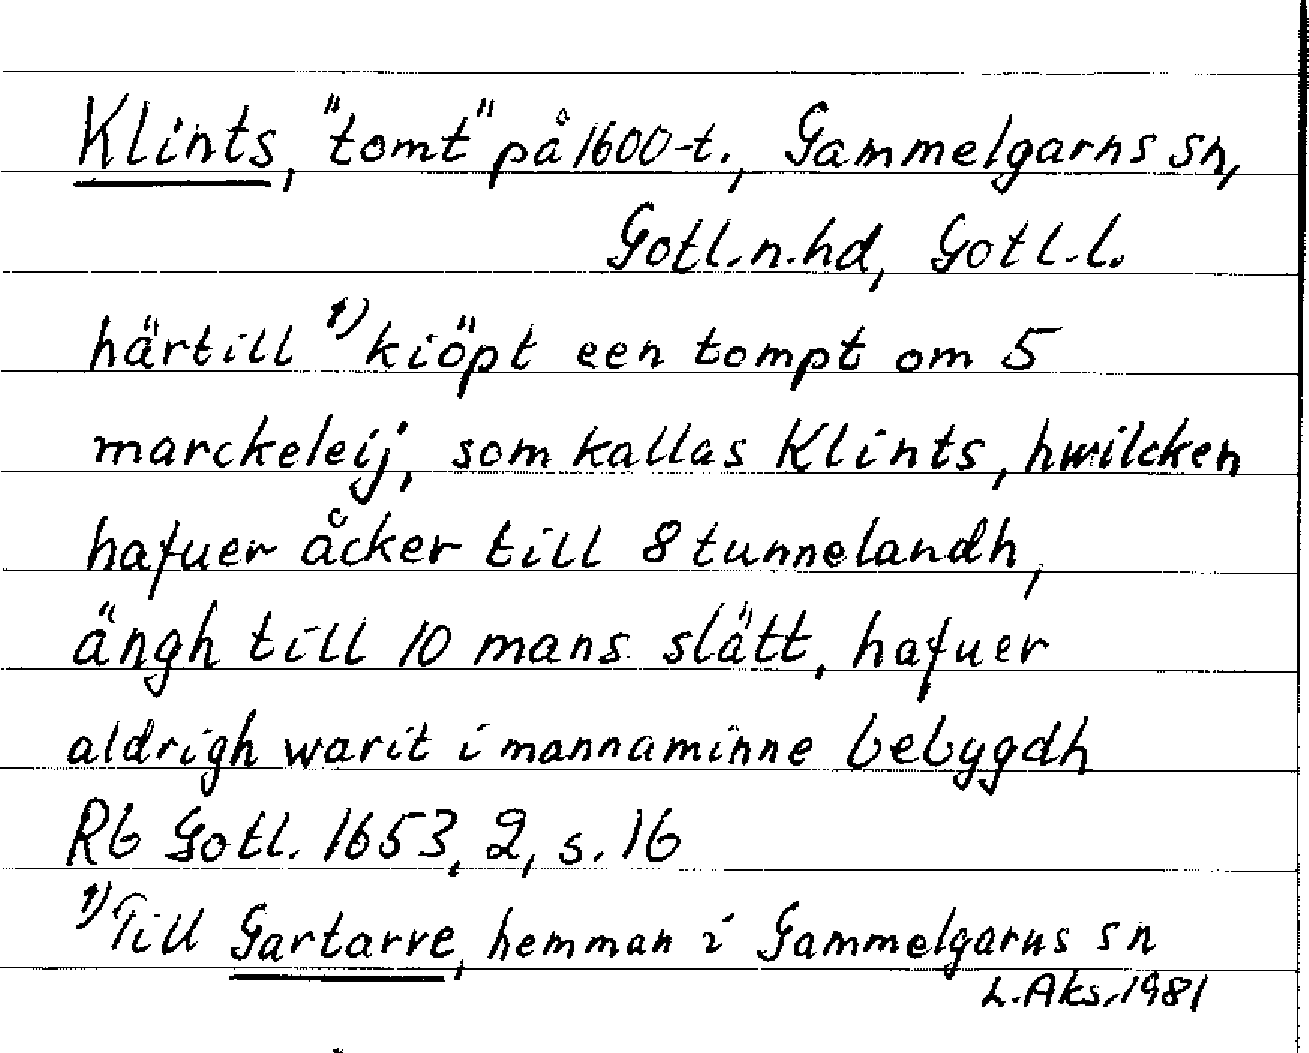 Klints, "tomt" på 1600-t., Gammelgarns sn,
Gotl.n.hd, Gotl.l.
härtill 1) kiöpt een tompt om 5
marckeleij, som kallas Klints, hwilcken
hafuer åcker till 8 tunnelandh,
ängh till 10 mans slätt, hafuer
aldrigh warit i mannaminne bebygdh
Rb Gotl. 1653, 2, s. 16
1) Till Gartarve, hemman i Gammelgarns sn
L. Aks. 1981